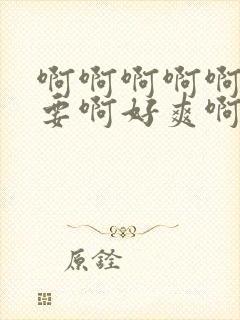 啊啊啊啊啊
要啊好爽啊
原铨